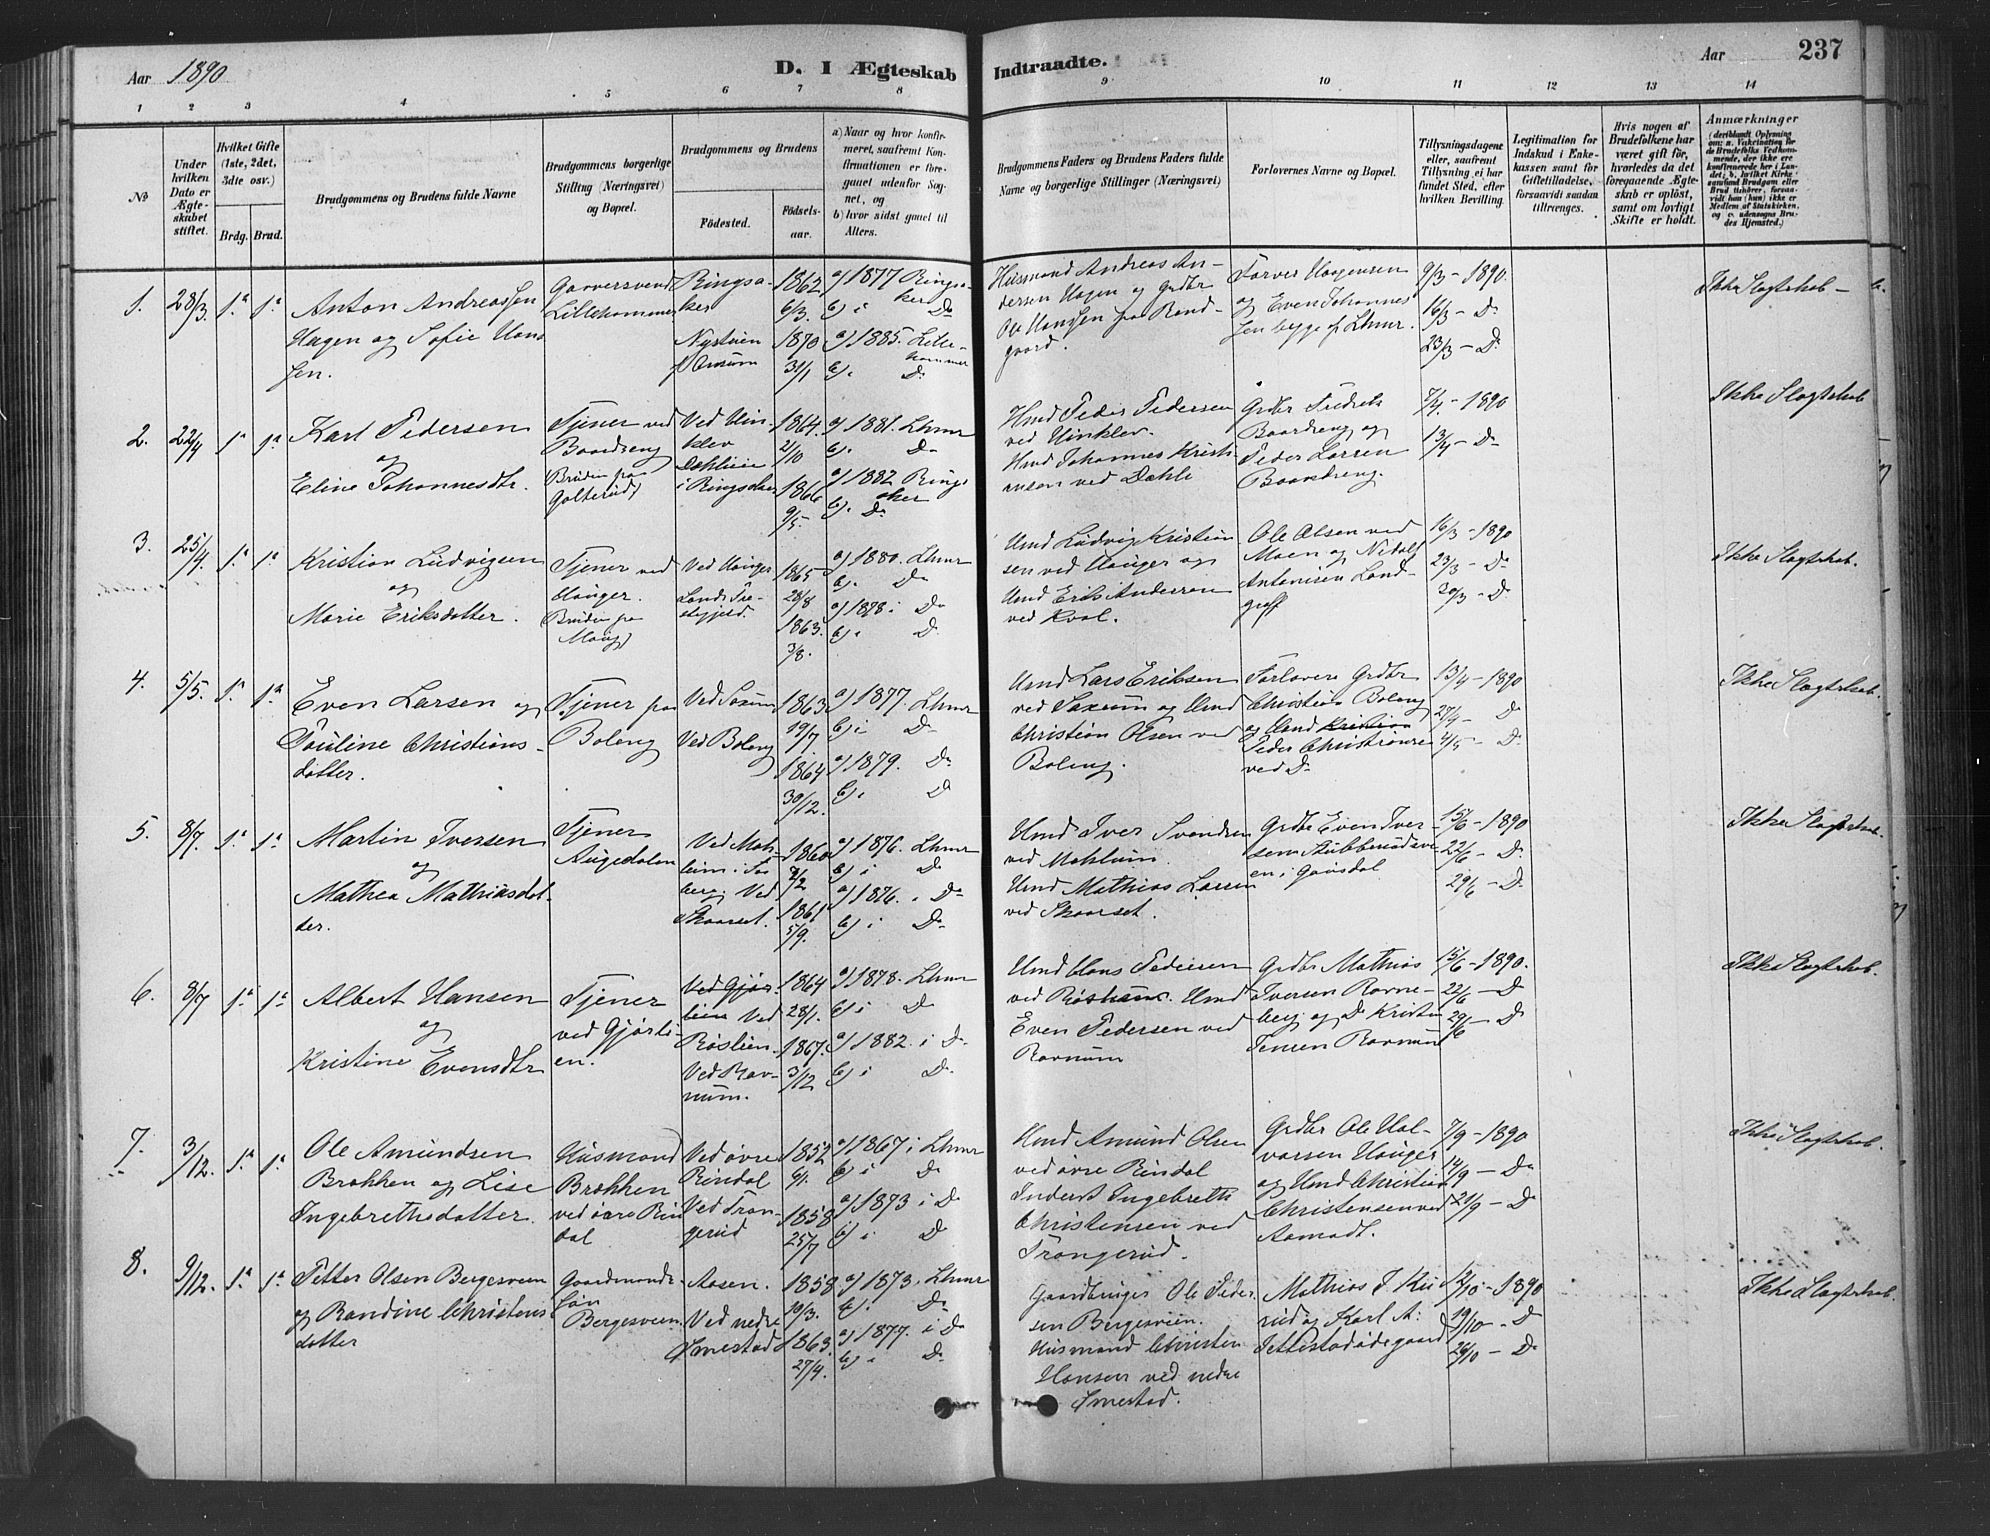 Aar 1890
D. I Ægteskab Indtraadte.
Aar 237
1 2 3 4 5 6 7 8 9 10 11 12 13 14
№
Under hvilken Dato er Ægteskabet stiftet.
Hvilket Gifte (1ste, 2det, 3die osv.)
Brdg. Brud.
Brudgommens og Brudens fulde Navne
Brudgommens borgerlige Stilling (Næringsvei) og Bopæl.
Brudgommens og Brudens
Fødested.
Fødselsaar.
a) Naar og hvor konfirmeret, saafremt Konfirmationen er foregaaet udenfor Sognet, og
b) hvor sidst gaaet til Alters.
Brudgommens Faders og Brudens Faders fulde Navne og borgerlige Stillinger (Næringsvei)
Forlovernes Navne og Bopæl.
Tillysningsdagene eller, saafremt Tillysning ei har fundet Sted, efter hvilken Bevilling.
Legitimation for Indskud i Enkekassen samt for Giftetilladelse, forsaavidt saadan tiltrænges.
Hvis nogen af Brudefolkene har været gift før, hvorledes da det foregaaende Ægteskab er opløst, samt om lovligt Skifte er holdt.
Anmærkninger
1. 28/3. 1ª 1ª
Anton Andreassen
Hagen og Sofie Hans
sen.
Garversvend
Lillehammer
Ringsaker
Nystuen
1862
6/3.
1870
31/1
a) 1877 Ringsaker
b) i Do
a) 1885. Lillehammer
b) i Do
Husmand Andreas An-
dersen Hagen og Grdbr
Ole Hansen fra Rand-
gaard.
Farver Haagensen
og Even Johannes
sen begge af Lhmr.
9/3 - 1890.
16/3 - Do
23/3 - Do
Ikke Slægtskab -
2. 22/4 1ª 1ª
Karl Pedersen
og
Eline Johannesdtr.
Tjener ved
Baardseng
Bruden fra
Golterud
Ved Hinklev
Dæhliein
i Ringsaker
1864.
2/10
1866
9/5.
a) 1881. Lhmr
b) Do
a) 1882 Ringsaker
b) Do
Hmd Peder Pedersen
ved Hinklev.
Hmd Johannes Kristi-
ansen ved Dæhle
Grdbr Fredrik
Baardseng og
Peder Larsen
Baardseng.
7/4 - 1890
13/4 - Do
Ikke Slægtskab
3. 25/4. 1ª 1ª
Kristian Ludvigsen
og
Marie Eriksdatter.
Tjener ved
Hauger.
Bruden fra
Haug
Ved Hauger
1865
28/8
1863.
3/8.
a) 1880. Lhmr
b) Do
a) 1878 i Do
b) i Do
Hmd Ludvig Kristian
sen ved Hauger og
Hmd Erik Andersen
ved Kval.
Ole Olsen ved
Moen og Nidolf
Antonisen Land-
graff
16/3 - 1890
23/3 - Do
30/3 - Do
Ikke Slægtskab.
4. 5/5. 1ª 1ª
Even Larsen og
Pauline Christians-
datter.
Tjener fra
Boleng
Ved Saxum
Ved Boleng
1863
19/7
1864
30/12.
a) 1877. Lhmr
b) i Do
a) 1879. Do
b) i Do
Hmd Lars Eriksen
ved Saxum og Hmd
Christian Olsen ved
Boleng.
Forlovere Grdbr
Christian Boleng
og Hmd Kristian
Peder Christiansen
ved Do
13/4 - 1890
27/4 - Do
4/5 - Do
Ikke Slægtskab.
5. 8/7. 1ª 1ª
Martin Iversen
og
Mathea Mathiasdat-
ter.
Tjener
Augedalen
Ved Mæhlum i Faaberg. Ved
Skaarset.
1860
2/2
1861
5/9.
a) 1876. Lhmr
b) i Do
a) 1876. i Do
b) i Do
Hmd Iver Svendsen
ved Mæhlum.
Hmd Mathias Larsen
ved Skaarset.
Grdbr Even Iver-
sen Stubberudsve
en i Gausdal
15/6 - 1890
22/6 - Do
29/6 - Do
Ikke Slægtskab.
6. 8/7 1ª 1ª
Albert Hansen
og
Kristine Evensdtr
Tjener
ved Gjørli-
en.
Ved Gjør-
lien Ved
Røslien.
Ved Rav-
num.
1864
28/1.
1867.
3/12
a) 1878. Lhmr
b) i Do
a) 1882. i Do
b) i Do
Hmd Hans Pedersen
ved Røshum. Hmd
Even Pedersen ved
Ravnum
Grdbr Mathias
Iversen Ravne-
berg og Do Kristen
Jensen Ravnum
15/6 - 1890.
22/6 - Do
29/6 - Do
Ikke Slægtskab.
7. 3/12. 1ª 1ª
Ole Amundsen
Brokken og Lise
Ingebrethsdatter.
Husmand
Brokken
ved øvre Rin
dal
Ved øvre
Rindal
Ved Tran-
gerud
1852
9/1.
1858
25/7
a) 1867 i Lhmr
b) i Do
a) 1873 i Do
b) i Do
Hmd Amund Olsen
ved øvre Rindal
Inderst Ingebreth
Christensen ved
Trangerud.
Grdbr Ole Hal-
vorsen Hauger
og Hmd Christian
Christensen ved
Aamodt.
7/9 - 1890
14/9 - Do
21/9 - Do
Ikke Slægtskab.
8. 9/12. 1ª 1ª
Petter Olsen Bergesveen
og Randine Christens
datter
Gaardmands-
søn
Bergesveen.
Aasen.
Ved nedre
Smestad
1858
10/3.
1863.
27/4.
a) 1873. Lhmr
b) i Do
a) 1877. i Do
b) i Do
Gaardbruger Ole Peder
sen Bergesveen.
Husmand Christen
Hansen ved nedre
Smestad.
Mathias J. Ku
rud og Karl A.
Jettestadødegaard
12/10 - 1890
19/10 - Do
26/10 - Do
Ikke Slægtskab.